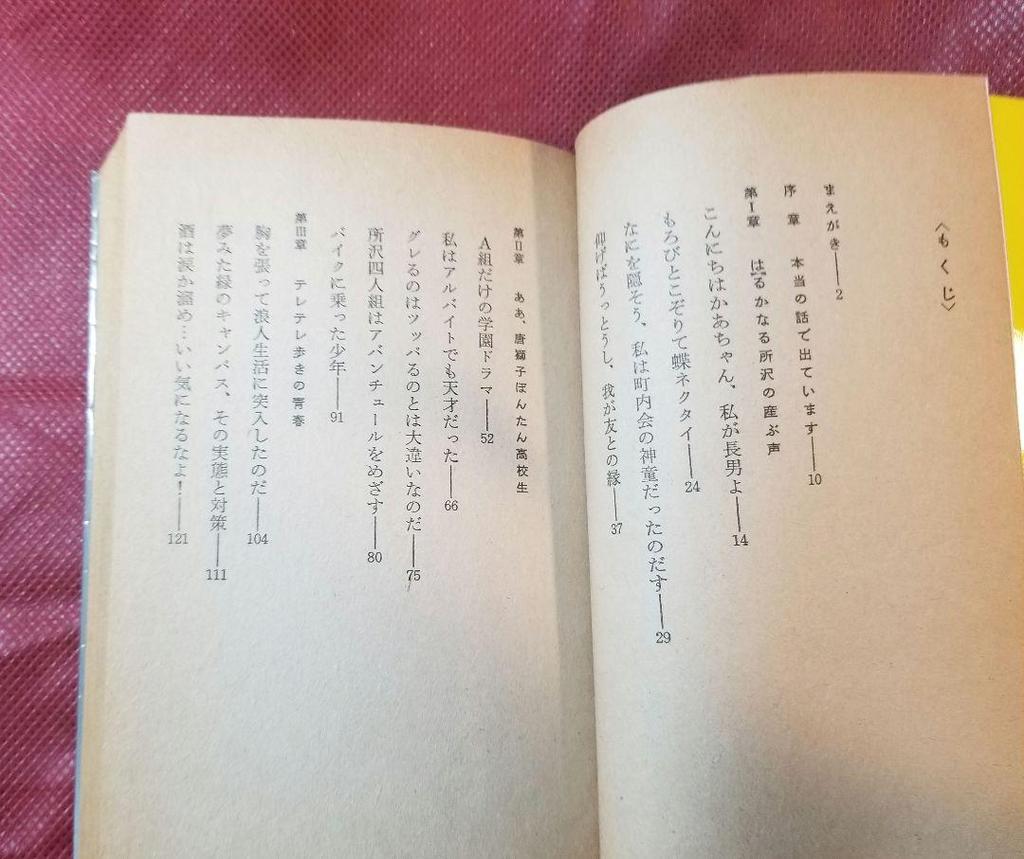 〈もくじ〉
まえがき——2
序章 本当の話で出ています——10
第Ⅰ章 はるかなる所沢の産ぶ声
こんにちはかあちゃん、私が長男よ——14
もろびとこぞりて蝶ネクタイ——24
なにを隠そう、私は町内会の神童だったのだす——29
仰げばうっとうし、我が友との縁——37
第Ⅱ章 ああ、唐獅子ぼんたん高校生
A組だけの学園ドラマ——52
私はアルバイトでも天才だった——66
グレるのはツッパるのとは大違いなのだ——75
所沢四人組はアバンチュールをめざす——80
バイクに乗った少年——91
第Ⅲ章 テレテレ歩きの青春
胸を張って浪人生活に突入したのだ——104
夢みた緑のキャンパス、その実態と対策——111
酒は涙か溜め…いい気になるなよ！——121